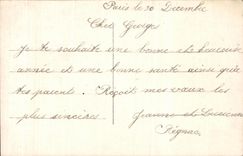 Paris le 30 Decembre
Cher Georges
Je te souhaite une bonne et heureuse
année et une bonne santé ainsi que
tes parent. Reçoit mes vœux les
plus sincères
Jeanne
Rignac